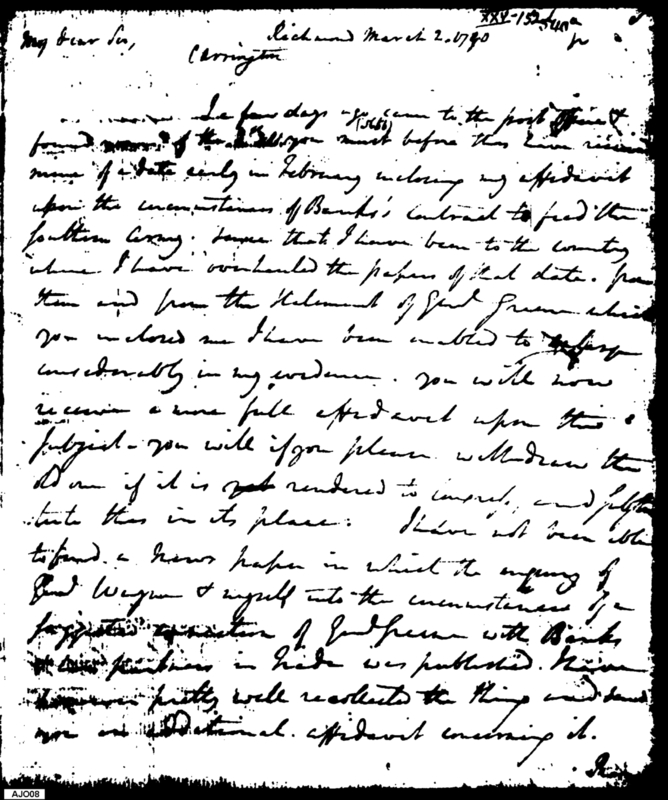 XXV-152
My Dear Sir,
Richmond March 2. 1790
Carrington
A few days ago came to the post office &
found of the you must before this have received
mine of a date early in February inclosing my affidavit
upon the circumstances of Banks's contract to feed the
southern Army. since that I have been to the country
where I have overhauled the papers of that date. from
them and from the statement of Genl Greene which
you enclosed me I have been enabled to enlarge
considerably in my evidence. you will now
receive a more full affidavit upon this
subject - you will if you please withdraw the
old one if it is not rendered to Congress, and substi
tute this in its place. I have not been able
to find a News paper in which the enquiry of
Genl Wayne & myself into the circumstances of a
suggested connection of Genl Greene with Banks
partners in trade was published. I have
however pretty well recollected the thing and send
you an additional affidavit concerning it.
AJO08